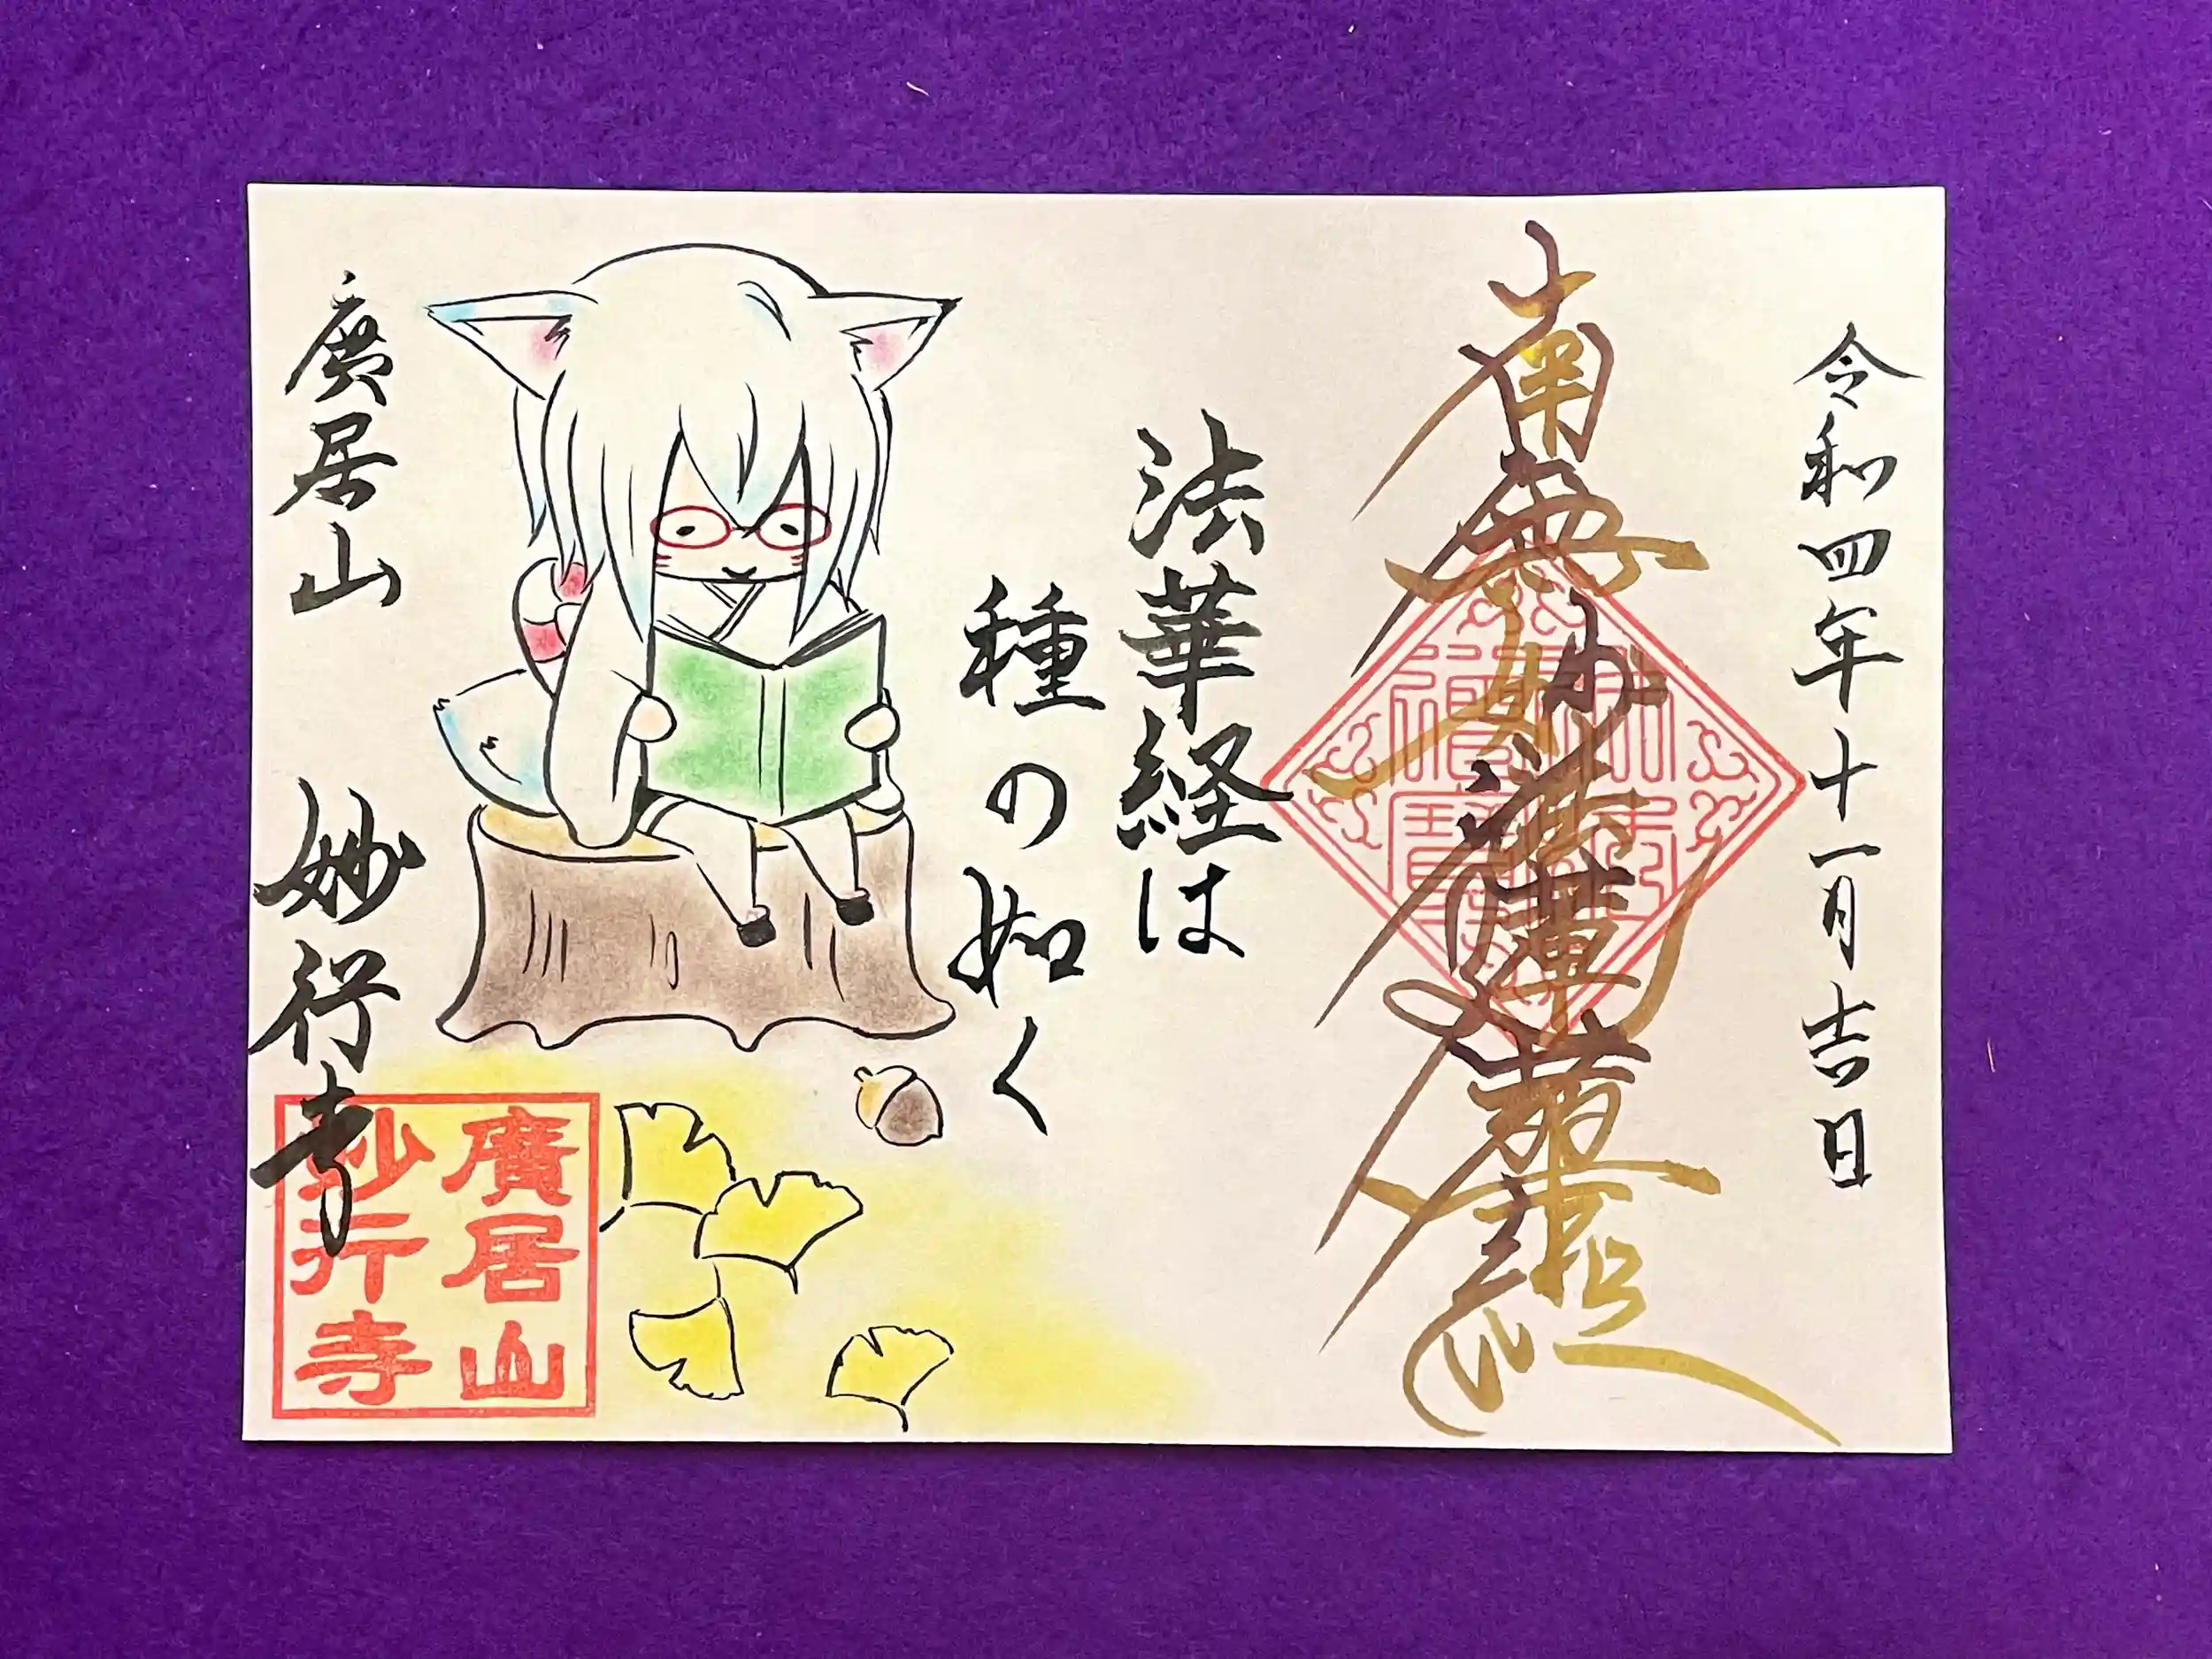 令和四年十一月吉日
南無妙法蓮華経
法華経は
種の如く
廣居山　妙行寺
廣居山
妙行寺